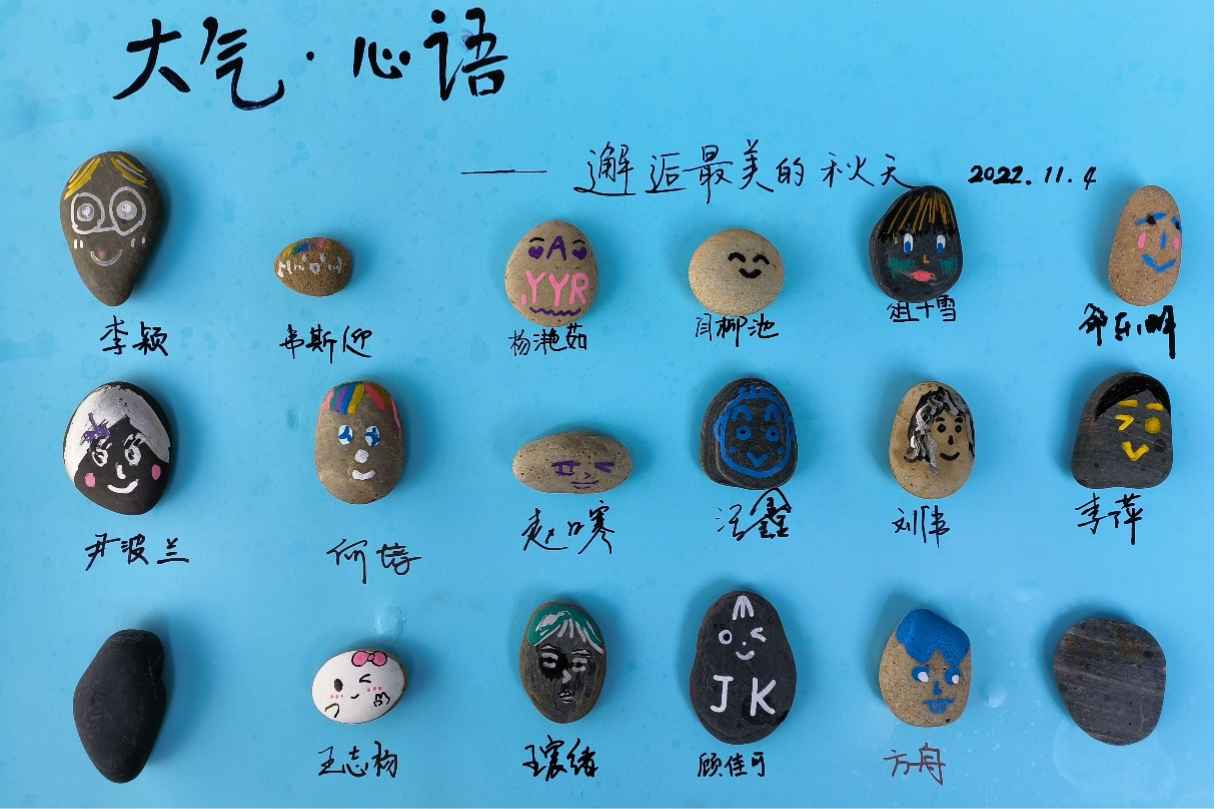 大气·心语
—— 邂逅最美的秋天 2022.11.4
A
YYR
李颖 韦斯迎 杨滟茹 闫柳池 祖十雪
尹波兰 何 赵 寒 汪鑫 刘伟 李萍
JK
王志 王 绪 顾佳可 方舟